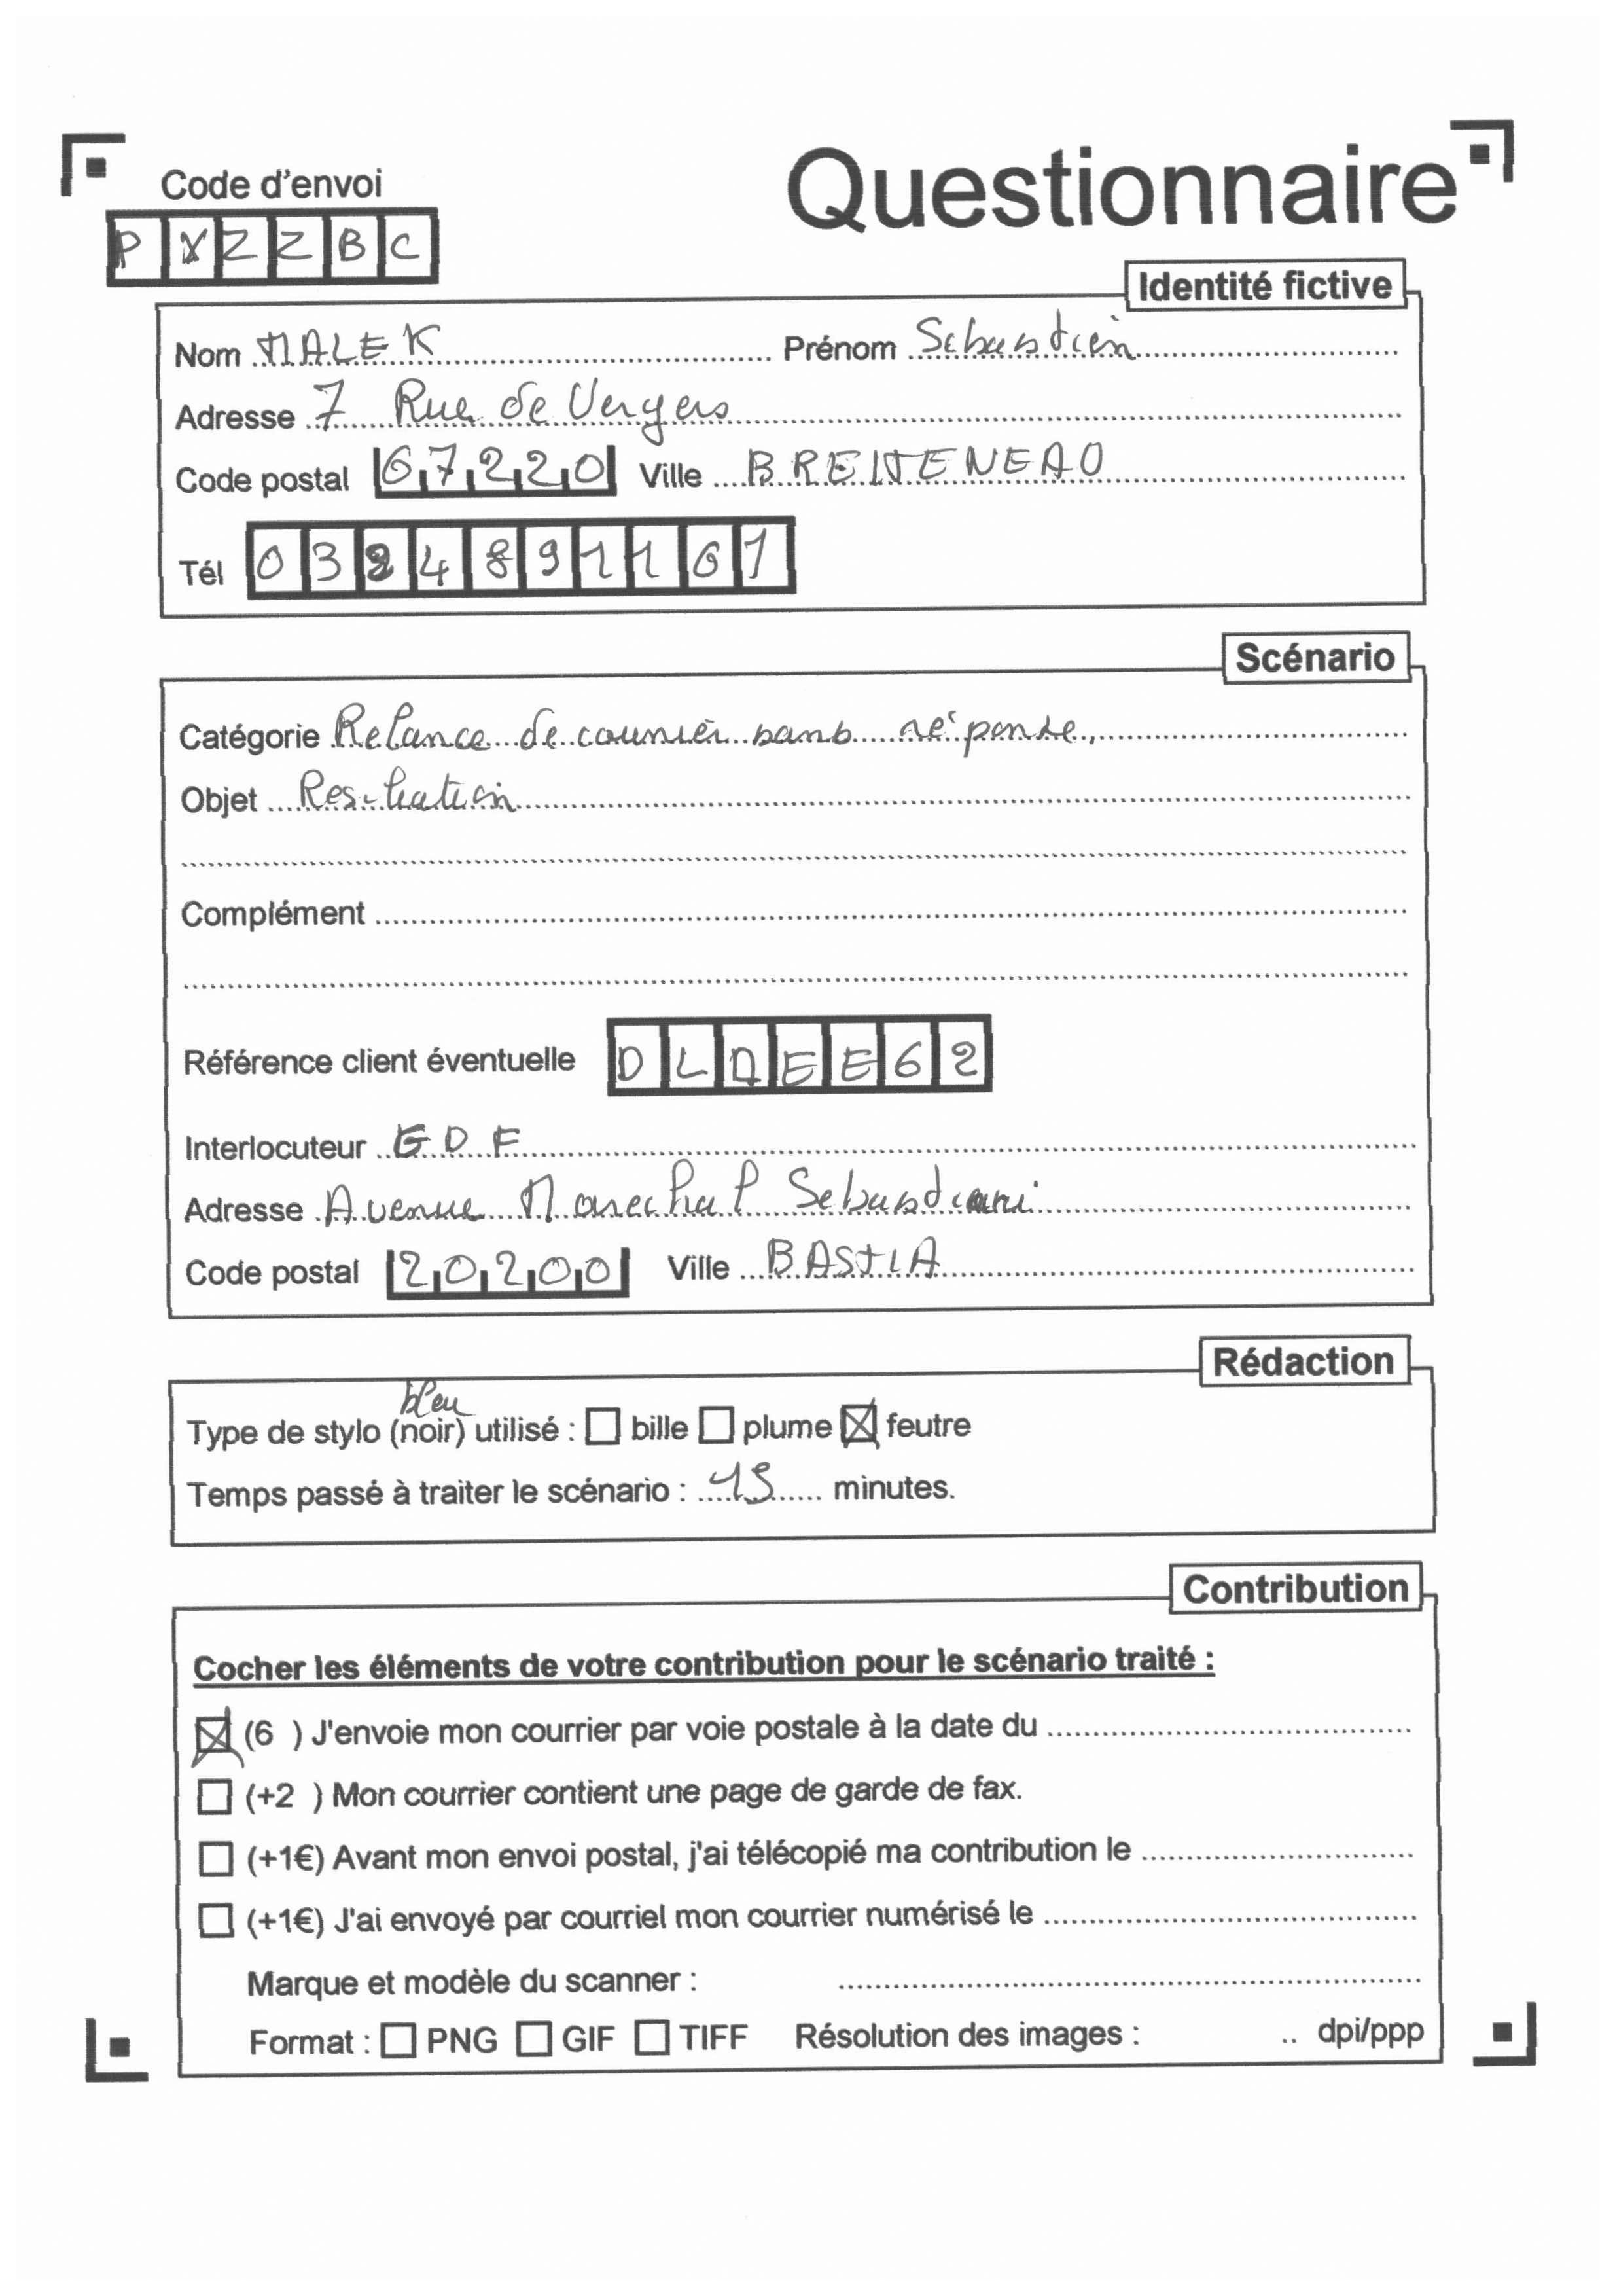 Code d'envoi
Questionnaire
PXZZBC
Identité fictive
Nom MALEK Prénom Sebastien
Adresse 7 Rue de Vergers
Code postal 67220 Ville
Tél 0324891161
Scénario
Catégorie Relance de courrier sans réponse.
Objet Resiliation
Complément
Référence client éventuelle
Interlocuteur EDF
Adresse Avenue Marechal Sebastiani
Code postal 20200 Ville BASTIA
Rédaction
bleu
Type de stylo (noir) utilisé : bille plume feutre
Temps passé à traiter le scénario : 15 minutes.
Contribution
Cocher les éléments de votre contribution pour le scénario traité :
(6 ) J'envoie mon courrier par voie postale à la date du
(+2 ) Mon courrier contient une page de garde de fax.
(+1€) Avant mon envoi postal, j'ai télécopié ma contribution le
(+1€) J'ai envoyé par courriel mon courrier numérisé le
Marque et modèle du scanner :
Format : PNG GIF TIFF Résolution des images : .. dpi/ppp